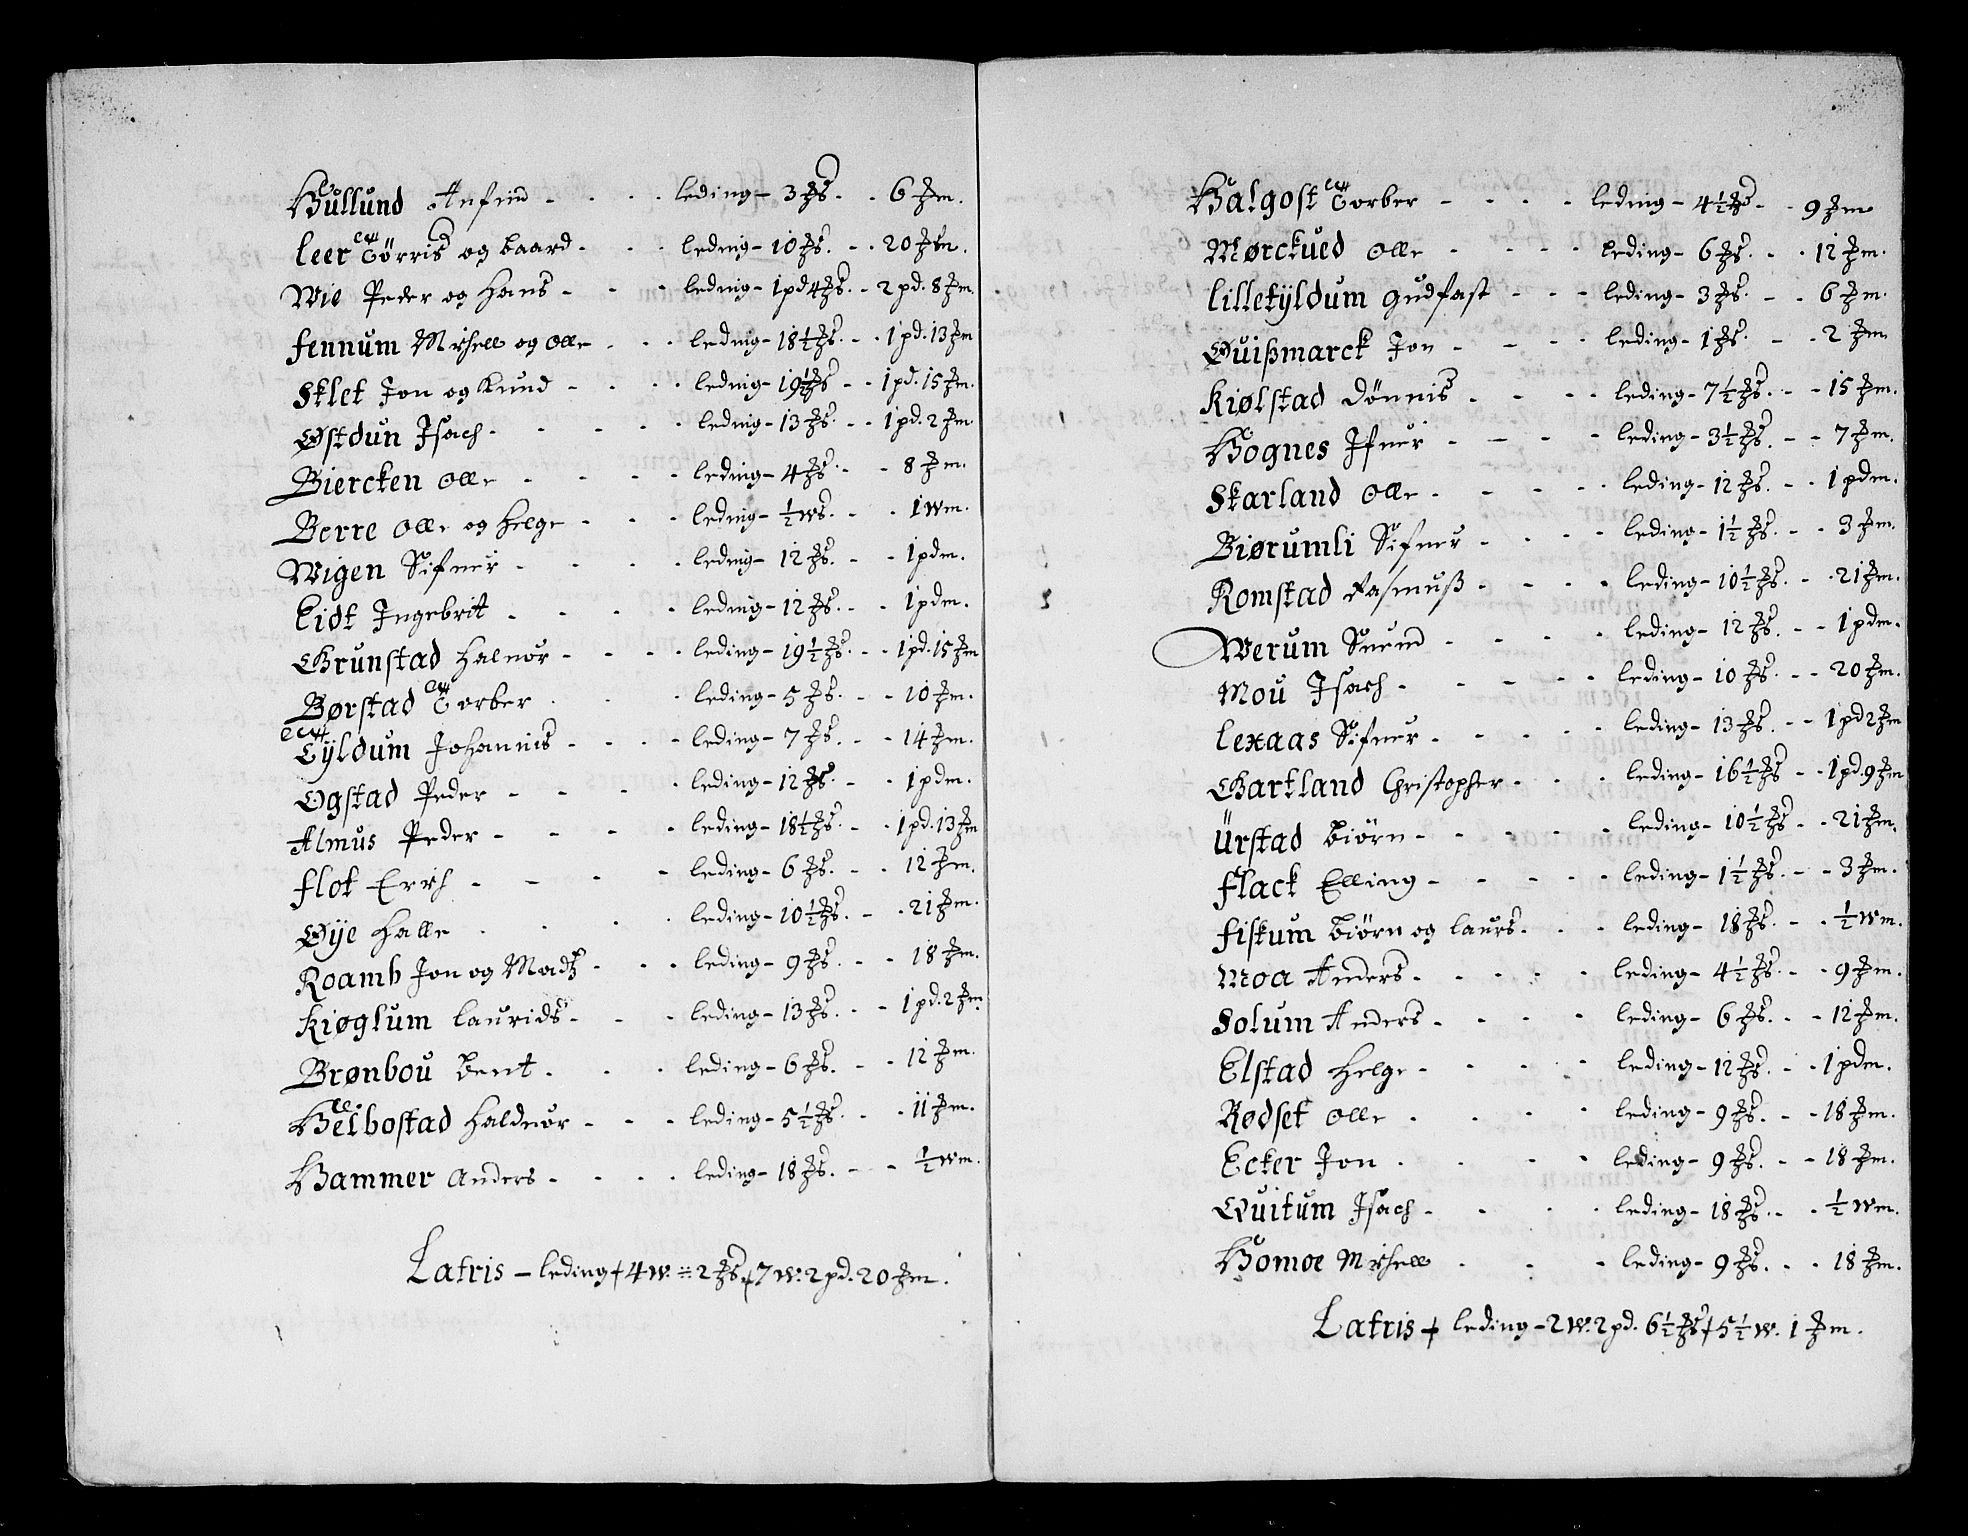 Hullund Anfind - - - - leding - 3 ℔s. - - 6 ℔m.
Leer Törris og Baard - - - leding - 10 ℔s. - - 20 ℔m.
Wie Peder og Hans - - - leding - 1 pd 4 ℔s. - - 2 pd. 8 ℔m.
Fennum Michell og Olle - - - leding - 18½ ℔s. - - 1 pd. 13 ℔m
Sklet Jon og Knud - - - - leding - 19½ ℔s - - 1 pd. 15 ℔m.
Østdun Jsach - - - - - leding - 13 ℔s. - - 1 pd. 2 ℔m.
Biercken Olle - - - - leding - 4 ℔s. - - 8 ℔m.
Berre Olle og Helge - - - leding - ½ ws. - - 1 wm.
Wigen Sifuer - - - - leding - 12 ℔s. - - 1 pdm.
Eidt Jngebrit - - - - leding - 12 ℔s. - - 1 pdm.
Grunstad Haluor - - - - leding - 19½ ℔s. - - 1 pd. 15 ℔m
Børstad Torber - - - leding - 5 ℔s. - - 10 ℔m.
Tyldum Johannis - - - - leding - 7 ℔s. - - 14 ℔m.
Ogstad Peder - - - - leding - 12 ℔s - - 1 pdm.
Almus Peder - - - - leding - 18½ ℔s. - - 1 pd. 13 ℔m
Flot Errich - - - - leding - 6 ℔s. - - 12 ℔m.
Øye Halle - - - - leding - 10½ ℔s. - - 21 ℔m.
Roamb Jon og Madtz - - - leding - 9 ℔s. - - 18 ℔m.
Kiøglum Laurids - - - leding - 13 ℔s. - - 1 pd. 2 ℔m.
Brønbou Bent - - - leding - 6 ℔s. - - 12 ℔m.
Helbostad Halduor - - - leding - 5½ ℔s. - - 11 ℔m.
Hammer Anders - - - - leding - 18 ℔s. - - ½ wm.
Latris - leding / 4 w. ÷ 2 ℔s / 7 w. 2 pd. 20 ℔m.
Halgost Torber - - - - leding - 4½ ℔s - - 9 ℔m
Mørckued Olle - - - - leding - 6 ℔s. - - 12 ℔m.
Lilletyldum Gudfast - - - leding - 3 ℔s. - - 6 ℔m.
Quißmarck Jon - - - - leding - 1 ℔s. - - 2 ℔m.
Kiølstad Dönnis - - - - leding - 7½ ℔s. - - 15 ℔m.
Hognes Jfuer - - - - leding - 3½ ℔s. - - 7 ℔m.
Skarland Olle - - - - leding - 12 ℔s. - - 1 pdm.
Biørumli Sifuer - - - - leding - 1½ ℔s. - - 3 ℔m.
Romstad Rasmuß - - - - leding - 10½ ℔s. - - 21 ℔m.
Werum Suend - - - - leding - 12 ℔s. - - 1 pdm.
Mou Jsach - - - - - leding - 10 ℔s. - - 20 ℔m.
Lexaas Sifuer - - - - leding - 13 ℔s. - - 1 pd 2 ℔m
Gartland Christopher - - - leding - 16½ ℔s - - 1 pd. 9 ℔m
Ürstad Biörn - - - - leding - 10½ ℔s - - 21 ℔m.
Flack Elling - - - - leding - 1½ ℔s. - - 3 ℔m.
Fiskum Biörn og Laurs - - - leding - 18 ℔s. - - ½ wm.
Moa Anders - - - - leding - 4½ ℔s. - - 9 ℔m.
Solum Anders - - - - leding - 6 ℔s. - - 12 ℔m.
Elstad Helge - - - - leding - 12 ℔s. - - 1 pdm.
Rødset Olle - - - leding - 9 ℔s. - - 18 ℔m.
Ecker Jon - - - - leding - 9 ℔s. - - 18 ℔m.
Quitum Jsach - - - - leding - 18 ℔s. - - ½ wm.
Homoe Michell - - - leding - 9 ℔s. - - 18 ℔m.
Latris / leding - 2 w. 2 pd. 6½ ℔s / 5½ w. 1 ℔m.